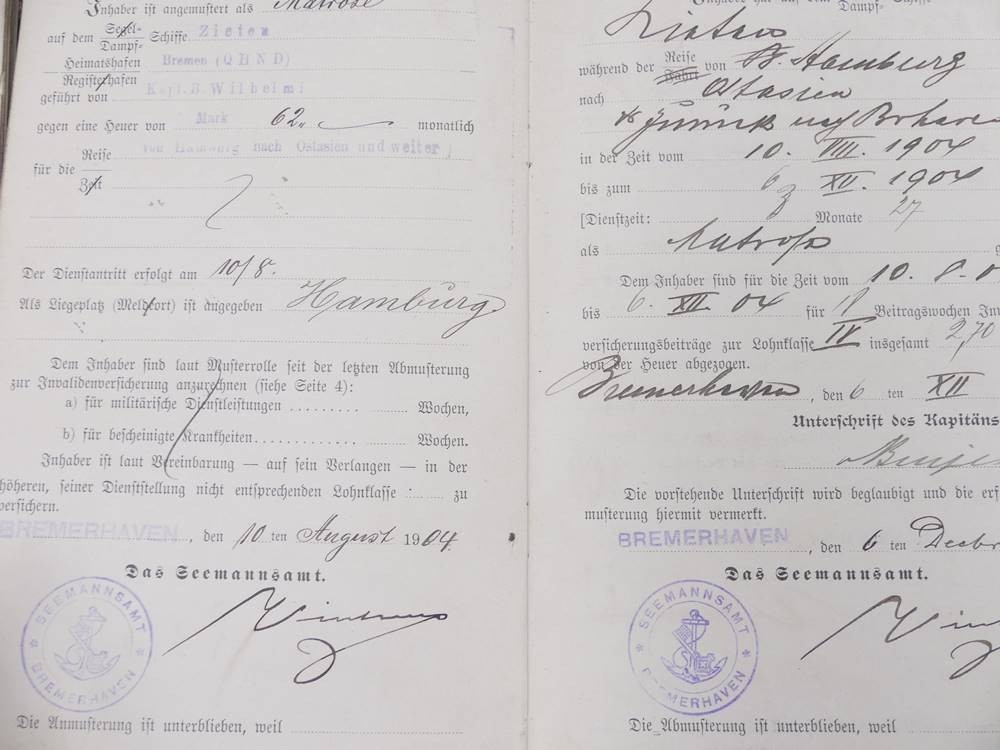 Inhaber ist angemustert als Matrose
auf dem Segel- Dampf- Schiffe Zieten
Heimatshafen Bremen (QBND)
Registerhafen
geführt von Kapt. B. Wilhelmi
gegen eine Heuer von Mark 62,, monatlich
für die Reise Zeit von Hamburg nach Ostasien und weiter;
Der Dienstantritt erfolgt am 10/8.
Als Liegeplatz (Meldeort) ist angegeben Hamburg
Dem Inhaber sind laut Musterrolle seit der letzten Abmusterung
zur Invalidenversicherung anzurechnen (siehe Seite 4):
a) für militärische Dienstleistungen ......... Wochen,
b) für bescheinigte Krankheiten............ Wochen.
Inhaber ist laut Vereinbarung — auf sein Verlangen — in der
höheren, seiner Dienststellung nicht entsprechenden Lohnklasse zu
versichern.
BREMERHAVEN, den 10 ten August 1904.
Das Seemannsamt.
SEEMANNSAMT
BREMERHAVEN
Die Anmusterung ist unterblieben, weil
Inhaber hat auf dem Dampf- Schiffe
Zieten
während der Reise Fahrt von Hamburg
nach Ostasien
& zurück
in der Zeit vom 10. VIII. 1904
bis zum 6 XII. 1904
[Dienstzeit: 3 Monate 27
als Matrose
Dem Inhaber sind für die Zeit vom 10. 8. 0
bis 6. XII. 04 für Beitragswochen Inv
versicherungsbeiträge zur Lohnklasse IV insgesamt 2,70
von der Heuer abgezogen.
Bremerhaven, den 6 ten XII
Unterschrift des Kapitäns
Die vorstehende Unterschrift wird beglaubigt und die erf
musterung hiermit vermerkt.
BREMERHAVEN, den 6 ten Decbr
Das Seemannsamt.
SEEMANNSAMT
BREMERHAVEN
Die Abmusterung ist unterblieben, weil